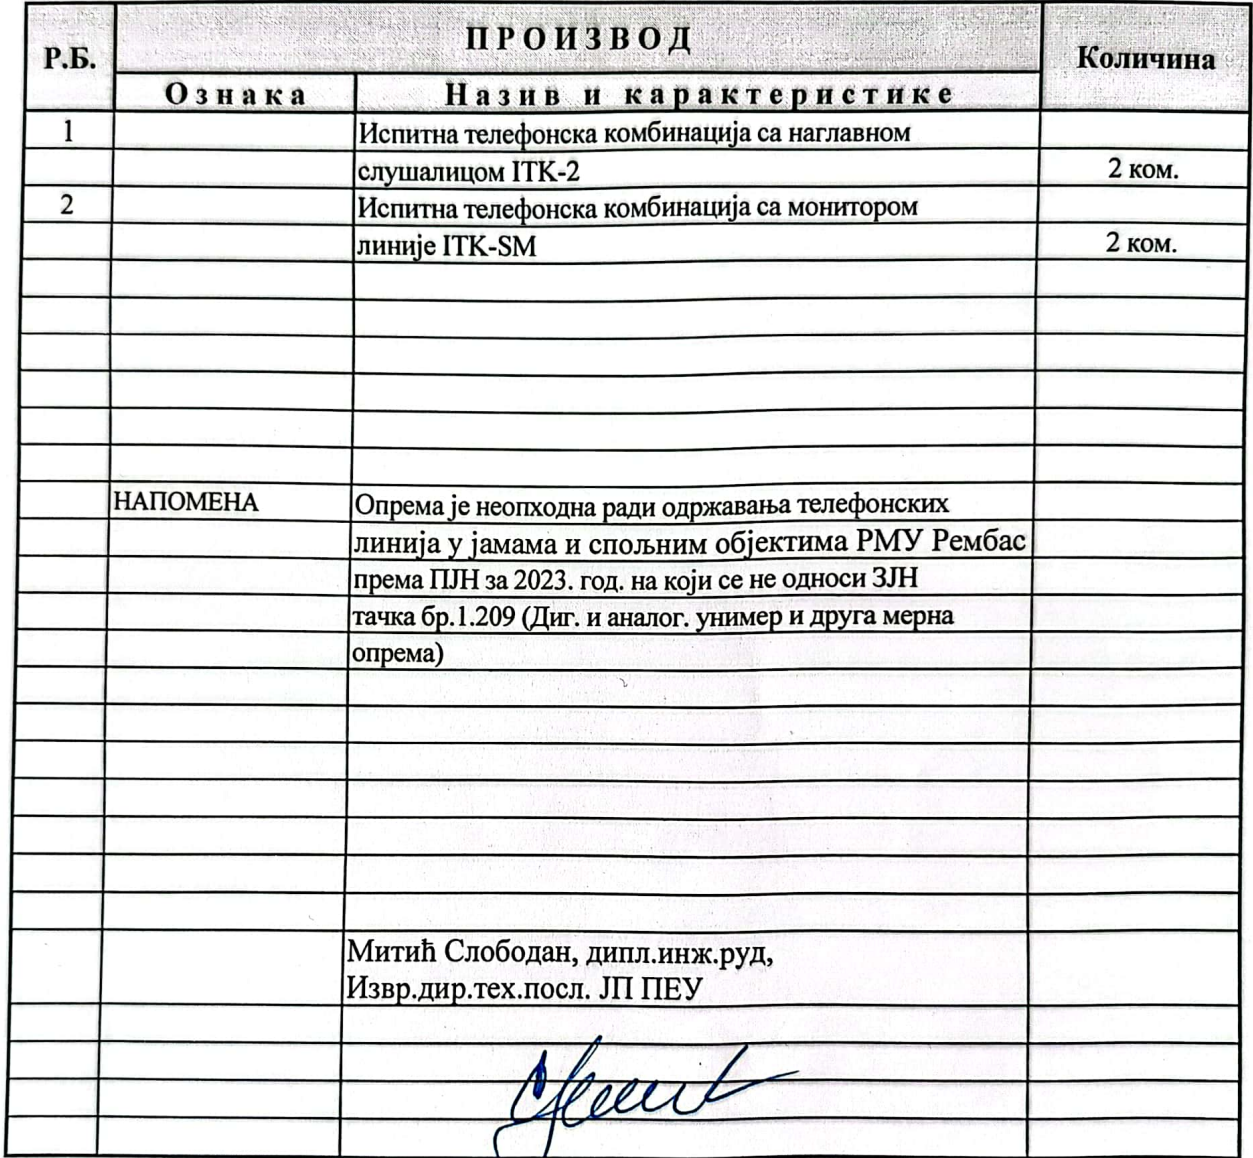 ПРОИЗВОД
Р.Б. Количина
Ознака Назив и карактеристике
1 Испитна телефонска комбинација са наглавном
слушалицом ITK-2 2 ком.
2 Испитна телефонска комбинација са монитором
линије ITK-SM 2 ком.
НАПОМЕНА Опрема је неопходна ради одржавања телефонских
линија у јамама и спољним објектима РМУ Рембас
према ПЈН за 2023. год. на који се не односи ЗЈН
тачка бр.1.209 (Диг. и аналог. унимер и друга мерна
опрема)
Митић Слободан, дипл.инж.руд,
Извр.дир.тех.посл. ЈП ПЕУ